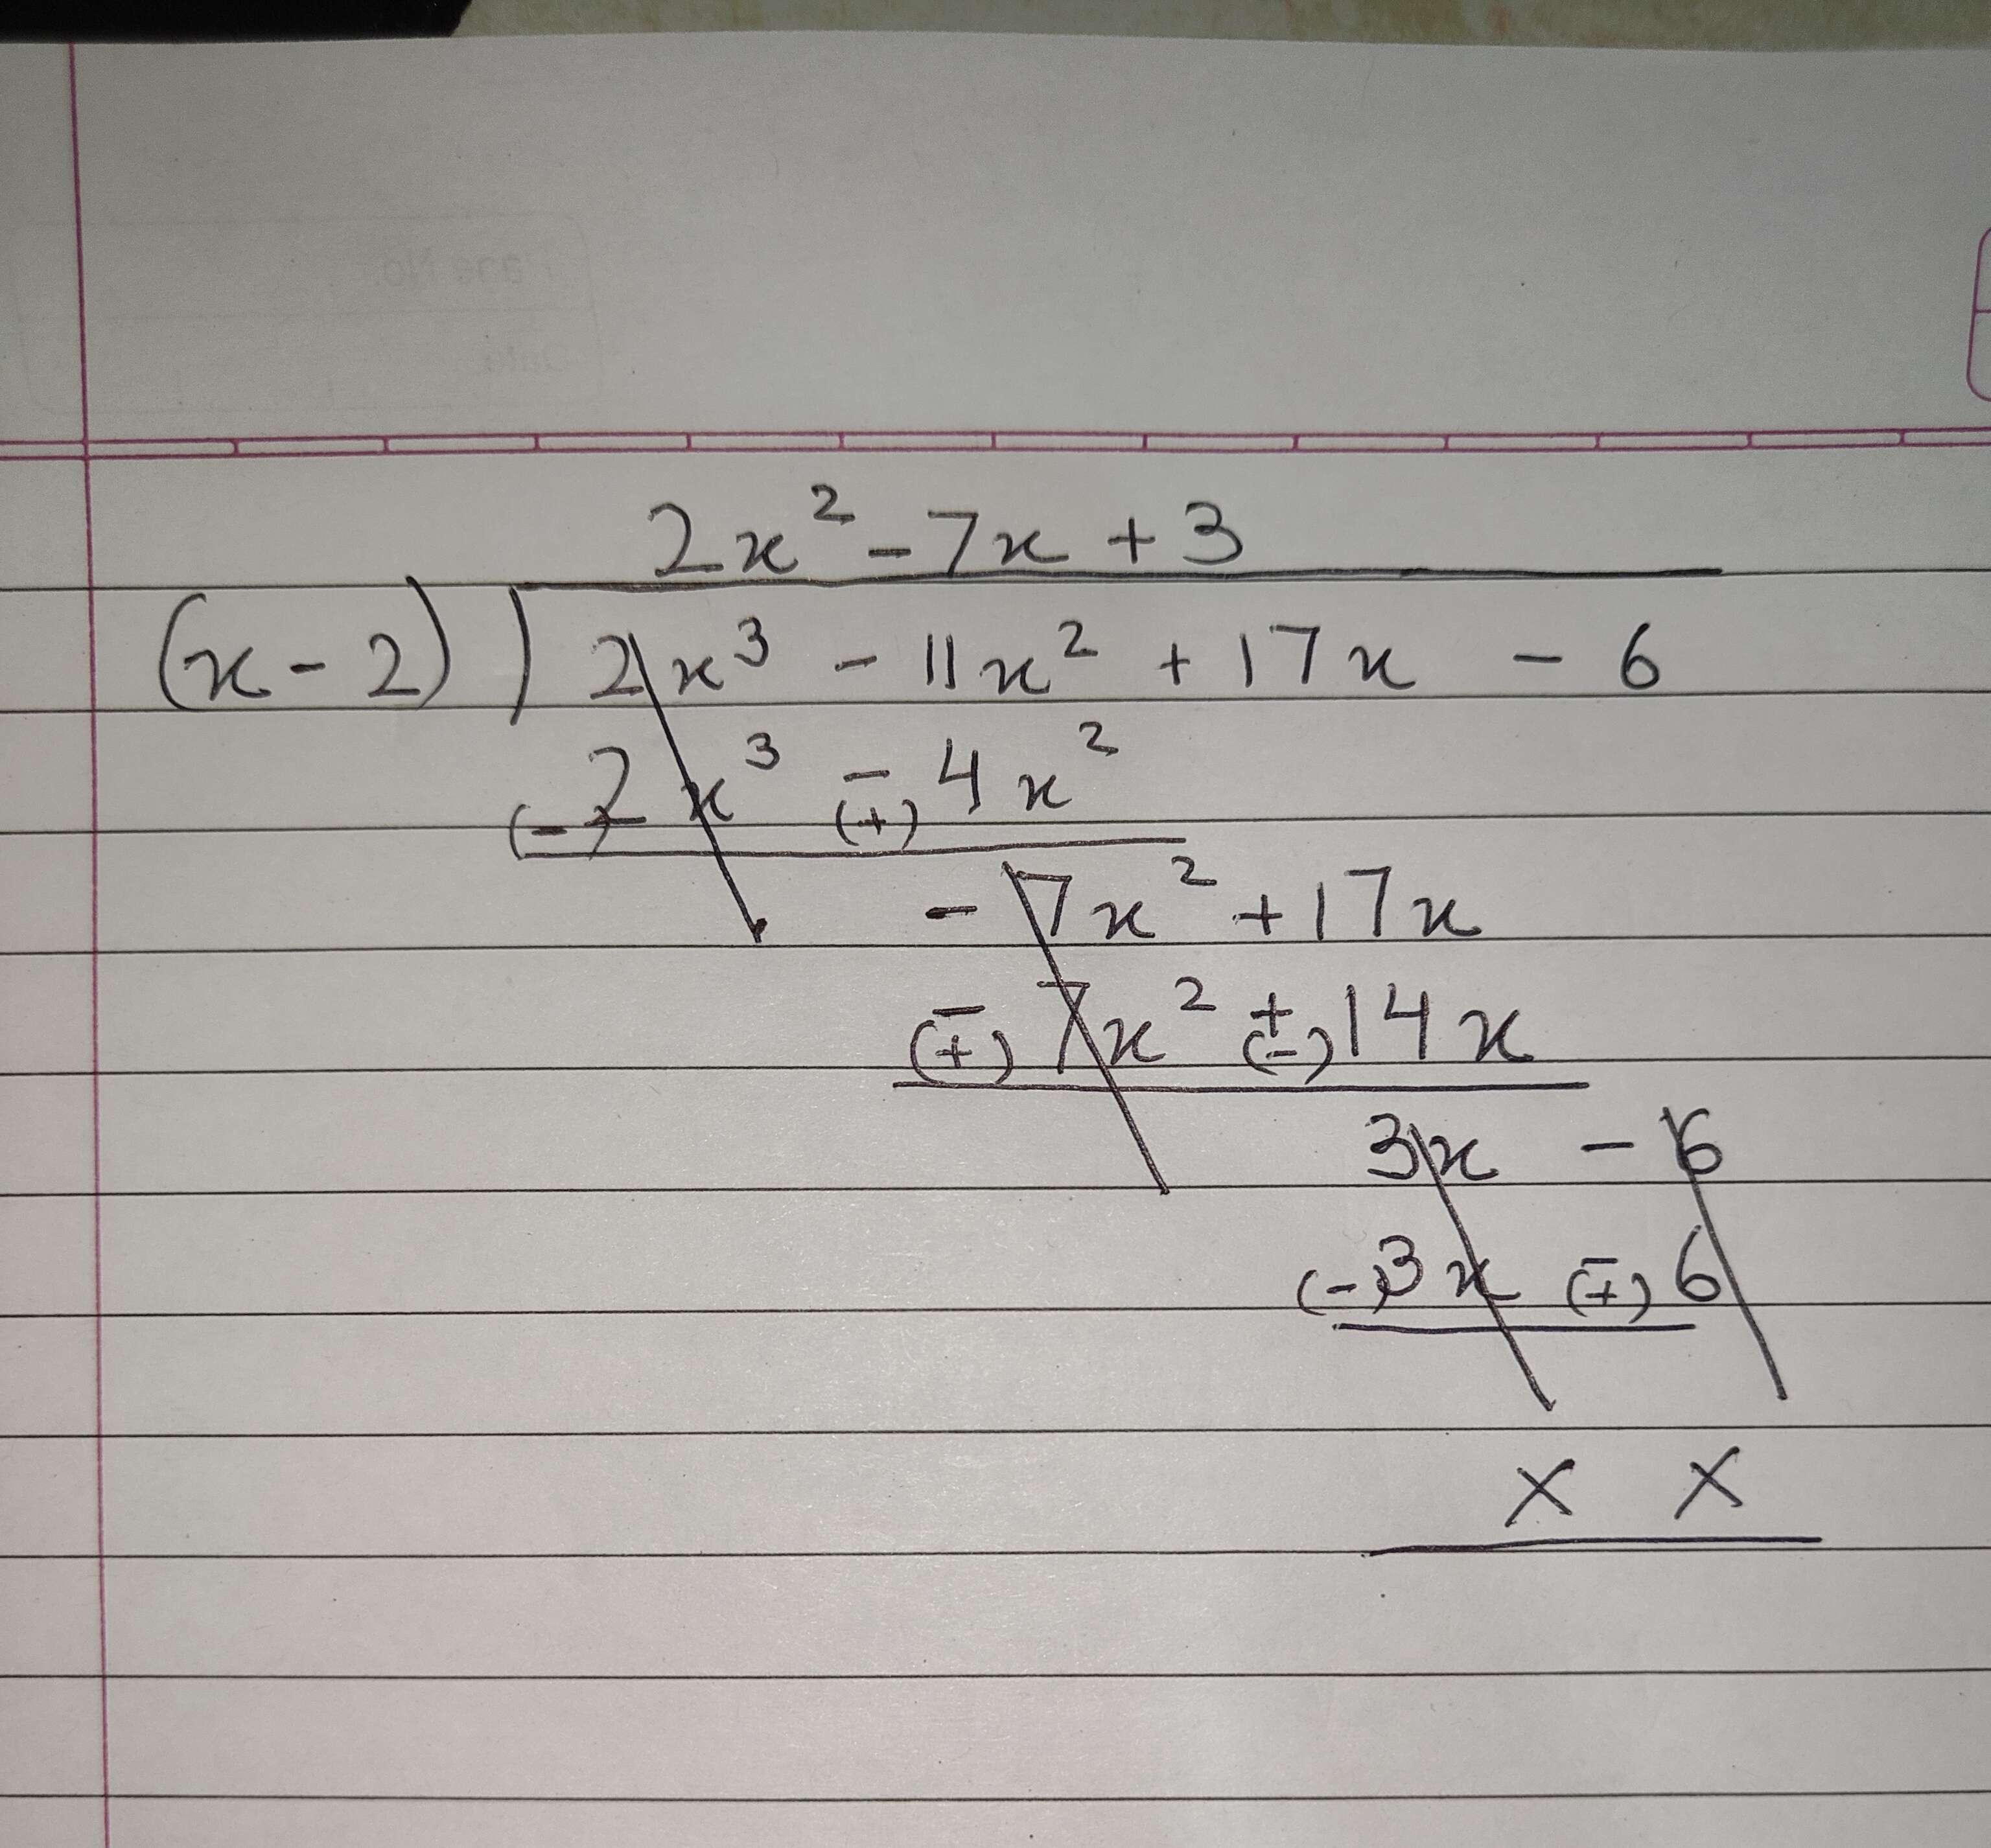 2x² - 7x + 3
(x - 2) ) 2x³ - 11x² + 17x - 6
2x³ - 4x²
(-) (+)
- 7x² + 17x
- 7x² + 14x
(+) (-)
3x - 6
3x - 6
(-) (+)
x x